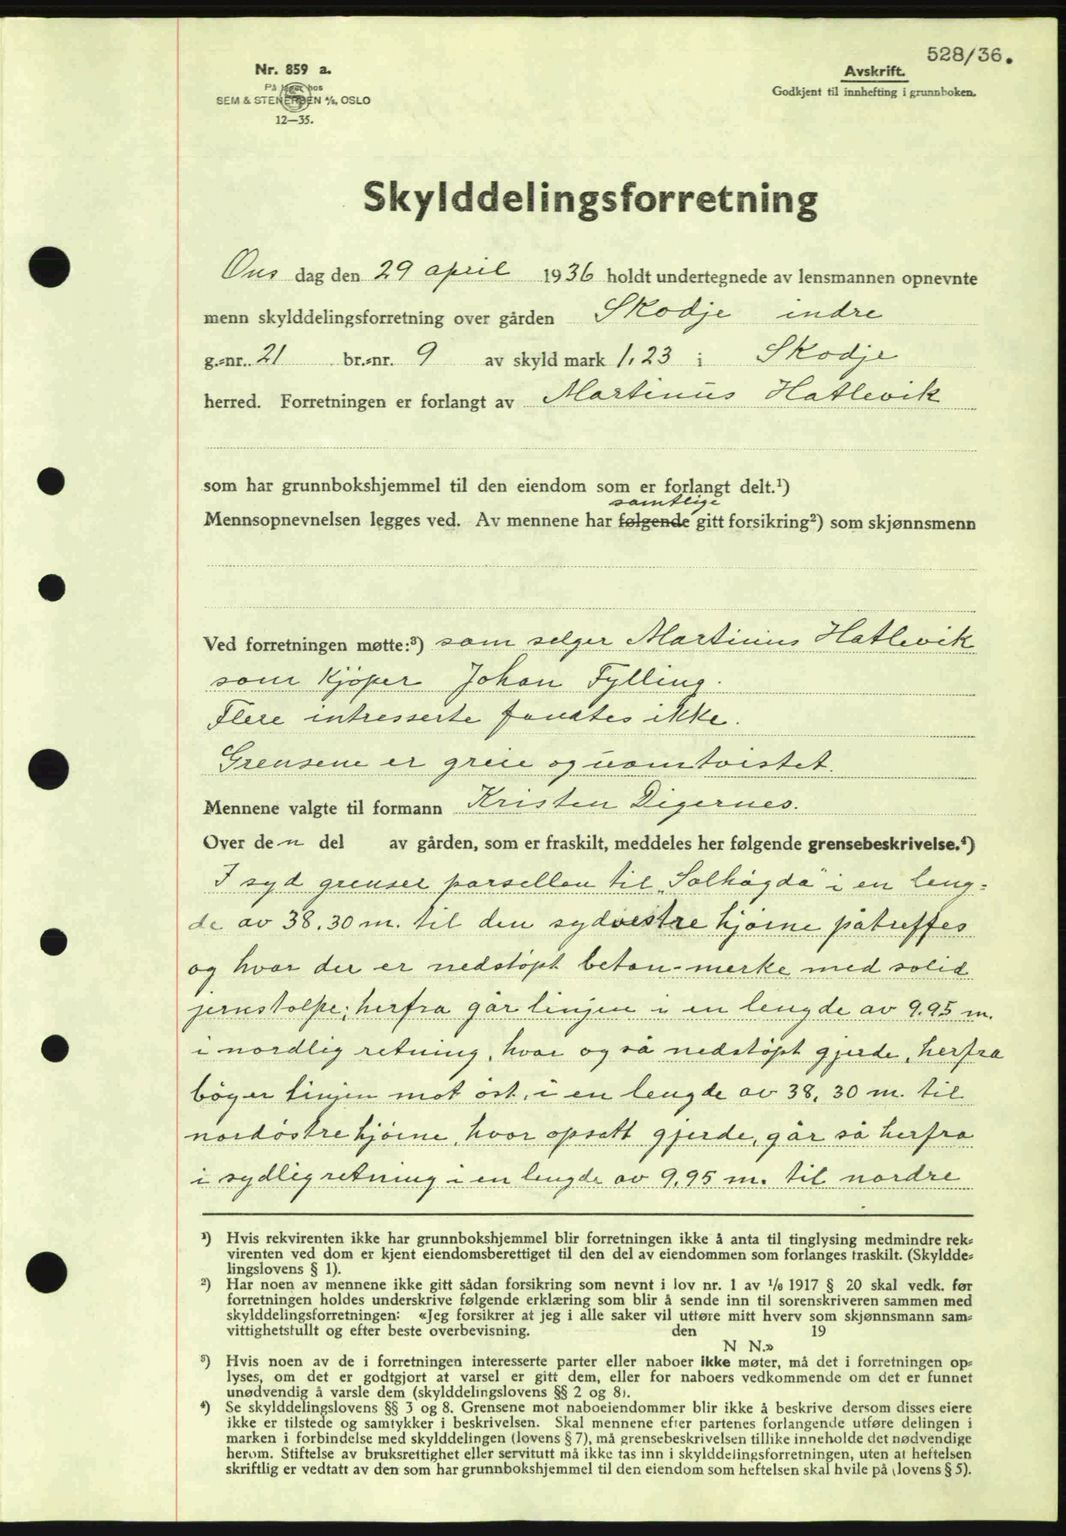 528/36.
Nr. 859 a.
På lager hos
SEM & STENERSEN A/S, OSLO
12—35.
Avskrift.
Godkjent til innhefting i grunnboken.
Skylddelingsforretning
Ons dag den 29 april 1936 holdt undertegnede av lensmannen opnevnte
menn skylddelingsforretning over gården Skodje indre
g.=nr. 21 br.=nr. 9 av skyld mark 1,23 i Skodje
herred. Forretningen er forlangt av Martinus Hatlevik
som har grunnbokshjemmel til den eiendom som er forlangt delt.¹)
samtlige
Mennsopnevnelsen legges ved. Av mennene har følgende gitt forsikring²) som skjønnsmenn
Ved forretningen møtte:³) som selger Martinus Hatlevik
som kjöper Johan Fylling.
Flere intresserte fandtes ikke.
Grensene er greie og uomtvistet.
Mennene valgte til formann Kristen Digernes.
Over den del av gården, som er fraskilt, meddeles her følgende grensebeskrivelse.⁴)
I syd grenser parsellen til „Solhögda" i en leng=
de av 38,30 m. til den sydvestre hjörne påtreffes
og hvor der er nedstöpt beton-merke med solid
jernstolpe; herfra går linjen i en lengde av 9.95 m.
i nordlig retning, hvor og så nedstöpt gjerde, herfra
böyer linjen mot öst, i en lengde av 38,30 m. til
nordöstre hjörne, hvor opsatt gjerde, går så herfra
i sydlig retning i en lengde av 9,95 m. til nordre
¹) Hvis rekvirenten ikke har grunnbokshjemmel blir forretningen ikke å anta til tinglysing medmindre rek=
virenten ved dom er kjent eiendomsberettiget til den del av eiendommen som forlanges fraskilt. (Skyldde=
lingslovens § 1).
²) Har noen av mennene ikke gitt sådan forsikring som nevnt i lov nr. 1 av 1/6 1917 § 20 skal vedk. før
forretningen holdes underskrive følgende erklæring som blir å sende inn til sorenskriveren sammen med
skylddelingsforretningen: «Jeg forsikrer at jeg i alle saker vil utføre mitt hverv som skjønnsmann sam=
vittighetsfullt og efter beste overbevisning. den 19
N N.»
³) Hvis noen av de i forretningen interesserte parter eller naboer ikke møter, må det i forretningen op=
lyses, om det er godtgjort at varsel er gitt dem, eller for naboers vedkommende om det er funnet
unødvendig å varsle dem (skylddelingslovens §§ 2 og 8).
⁴) Se skylddelingslovens §§ 3 og 8. Grensene mot naboeiendommer blir ikke å beskrive dersom disses eiere
ikke er tilstede og samtykker i beskrivelsen. Skal mennene efter partenes forlangende utføre delingen i
marken i forbindelse med skylddelingen (lovens § 7), må grensebeskrivelsen tillike inneholde det nødvendige
herom. Stiftelse av bruksrettighet eller servitutt må ikke tas inn i skylddelingsforretningen, uten at heftelsen
skriftlig er vedtatt av den som har grunnbokshjemmel til den eiendom som heftelsen skal hvile på (lovens § 5).